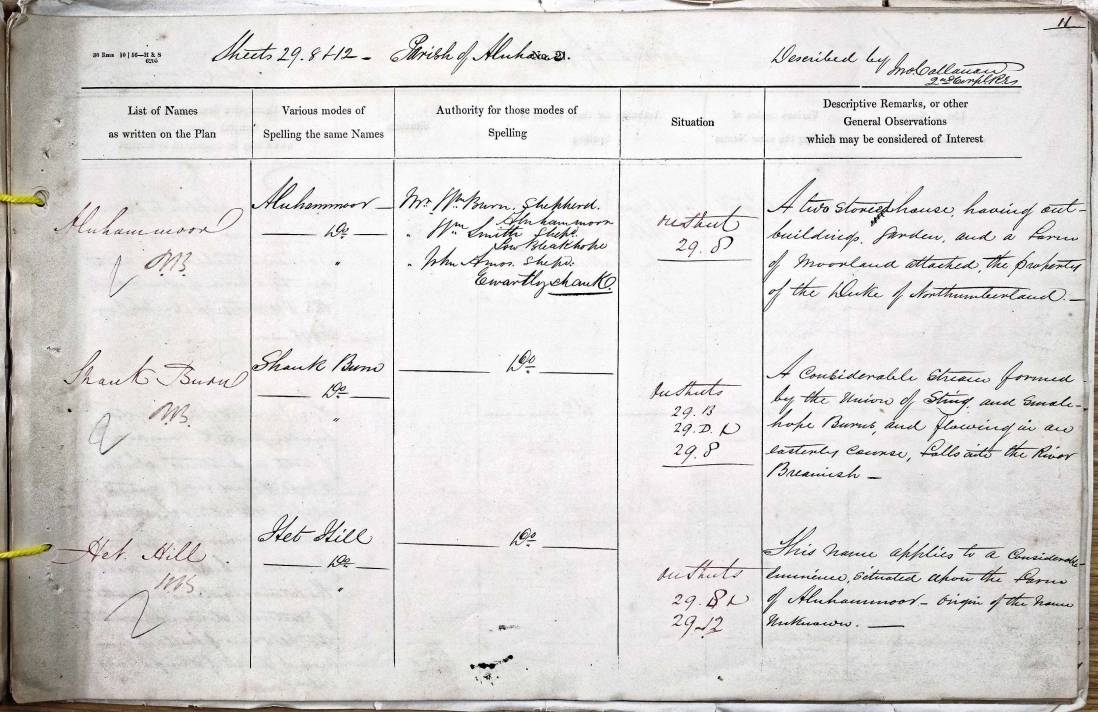 11
20 Rms 10 | 56—H & S
Sheets 29. 8 & 12 - Parish of Alnham. No. 21.
Described by Jno. Callanan
2nd Corpl. R.E.
List of Names
as written on the Plan
Various modes of
Spelling the same Names
Authority for those modes of
Spelling
Situation
Descriptive Remarks, or other
General Observations
which may be considered of Interest
Alnhammoor
Alnhammoor
Do
"
Mr. Wm. Burn. Shepherd.
Alnhammoor
" Wm Smith Shepd.
Low Bleakhope
" John Amos. Shepd.
Ewartly Shank.
On Sheet
29. 8
A two storied house, having out-
buildings, Garden, and a Farm
of Moorland attached, the property
of the Duke of Northumberland. —
Shank Burn
Shank Burn
Do
"
Do
On Sheets
29. B
29. D.
29. 8
A Considerable Stream formed
by the Union of Sting, and Small-
hope Burns, and flowing in an
easterly Course, falls into the River
Breamish —
Het Hill
Het Hill
Do
"
Do
On Sheets
29. 8
29. 12
This name applies to a Considerable
eminence, situated upon the Farm
of Alnhammoor - Origin of the Name
Unknown. —